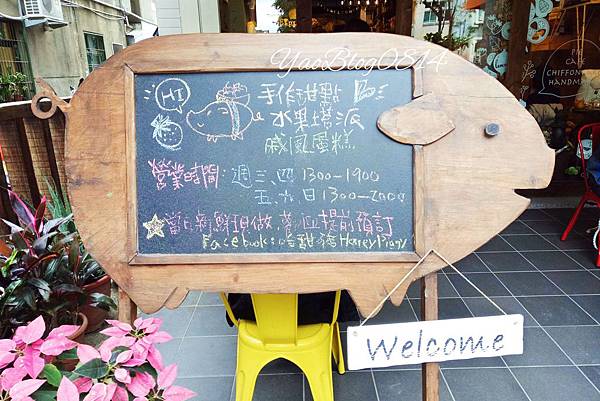 YaoBlog0814
HI
手作甜點
水果塔派
戚風蛋糕
營業時間：週三、四 1300-1900
五、六、日 1300-2000
當日新鮮現做，
提前預訂
Facebook:
Honey Piggy
Welcome
CHIFFON
HANDMA